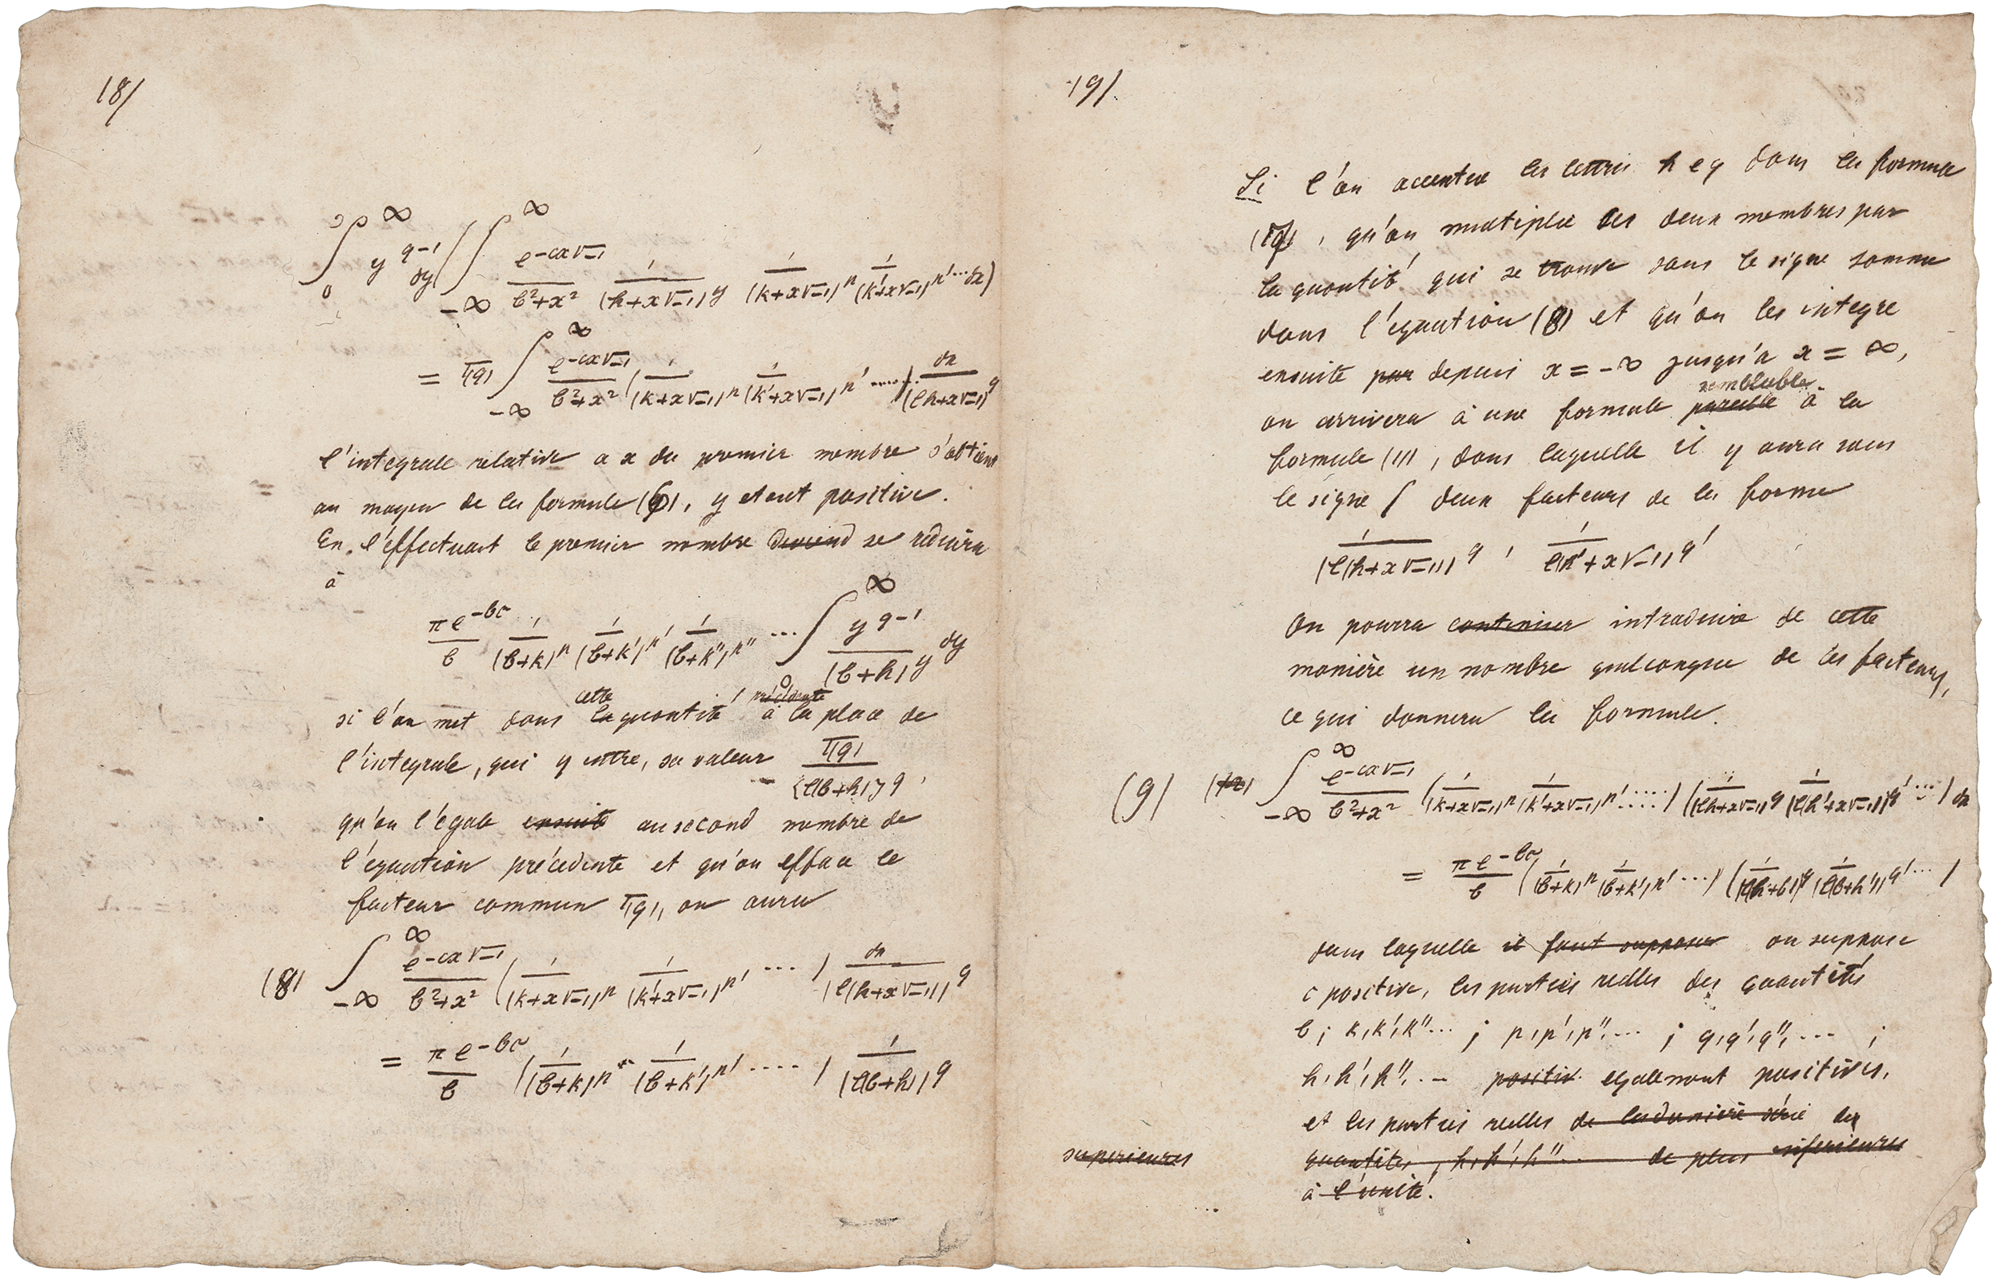 18/
∫₀^∞ y^{q-1} dy ( ∫_{-∞}^{∞} e^{-cx√-1}/(b²+x²) 1/(h+x√-1)^y 1/(k+x√-1)^n 1/(k'+x√-1)^{n'} ... dx )
= Γ(q) ∫_{-∞}^{∞} e^{-cx√-1}/(b²+x²) ( 1/(k+x√-1)^n 1/(k'+x√-1)^{n'} .... ) dx/(l(h+x√-1))^q
l'integrale relative a x du premier membre s'obtient
au moyen de la formule (6), y etant positive.
En l'effectuant le premier membre devient se réduira
à
πe^{-bc}/b 1/(b+k)^n 1/(b+k')^{n'} 1/(b+k'')^{n''} ... ∫₀^∞ y^{q-1}/(b+h)^y dy
si l'on met dans la cette quantité précédente à la place de
l'integrale, qui y entre, sa valeur Γ(q)/{l(b+h)}^q,
qu'on l'égale ensuite au second membre de
l'équation précédente et qu'on efface le
facteur commun Γ(q), on aura
(8) ∫_{-∞}^{∞} e^{-cx√-1}/(b²+x²) ( 1/(k+x√-1)^n 1/(k'+x√-1)^{n'} .... ) dx/(l(h+x√-1))^q
= πe^{-bc}/b ( 1/(b+k)^n 1/(b+k')^{n'} .... ) 1/(l(b+h))^q
19/.
Si l'on accentue les lettres h e q dans la formule
, qu'on multiplie les deux membres par
la quantité qui se trouve sous le signe somme
dans l'équation (8) et qu'on les integre
ensuite par depuis x = -∞ jusqu'a x = ∞,
on arrivera à une formule pareille semblable à la
formule (11), dans laquelle il y aura sous
le signe ∫ deux facteurs de la forme
1/(l(h+x√-1))^q , 1/l(h'+x√-1)^{q'}
On pourra continuer introduire de cette
manière un nombre quelconque de ces facteurs,
ce qui donnera la formule.
(9) (12) ∫_{-∞}^{∞} e^{-cx√-1}/(b²+x²) ( 1/(k+x√-1)^n 1/(k'+x√-1)^{n'} .... ) ( 1/(l(h+x√-1))^q 1/(l(h'+x√-1))^{q'} .... ) dx
= πe^{-bc}/b ( 1/(b+k)^n 1/(b+k')^{n'} .... ) ( 1/(l(h+b))^q 1/(l(b+h'))^{q'} .... )
dans laquelle il faut supposer on suppose
c positive, les parties reelles des quantités
b; k, k', k'' ... ; n, n', n'', ... ; q, q', q'', ... ;
h, h', h'', ... positiv egalement positives,
et les parties reelles de la derniere série des
quantités, h, h', h'' ... de plus inferieures
superieures
à l'unité.